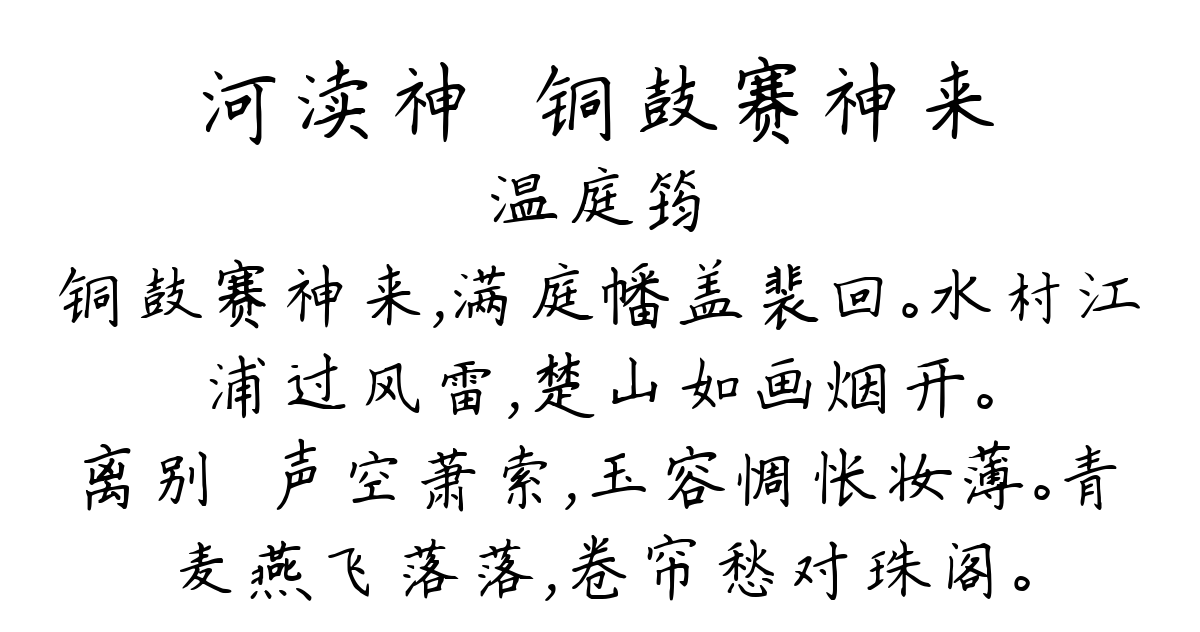 河渎神 铜鼓赛神来
温庭筠
铜鼓赛神来,满庭幡盖裴回。水村江
浦过风雷,楚山如画烟开。
离别 声空萧索,玉容惆怅妆薄。青
麦燕飞落落,卷帘愁对珠阁。